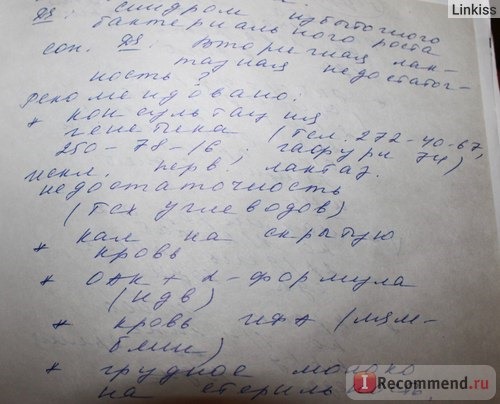 Linkiss
DS: синдром избыточного
бактериального роста
соп. DS: вторичная лак-
тазная недостаточ-
ность?
Рекомендовано:
* консультация
генетика (тел. 272-40-67,
250-78-16; Гафури 74)
искл. перв. лактаз.
недостаточность
(тсх углеводов)
* кал на скрытую
кровь
* ОАК + л-формула
(НДВ)
* кровь ИФА (лям-
блии)
* грудное молоко
на стерильность.
IRecommend.ru